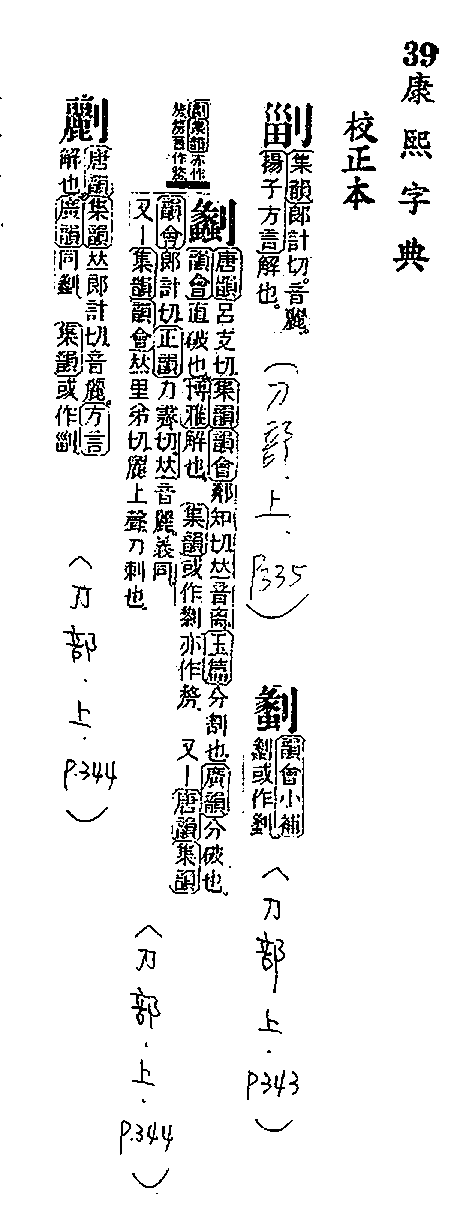 39康熙字典
校正本
集韻郎計切。音麗。
揚子方言解也。
(刀部.上.P335)
韻會小補
劙或作
(刀部上.P343)
劙
唐韻呂支切集韻韻會鄰知切𠀤音离玉篇分割也廣韻分破也
韻會直破也博雅解也 集韻或作剺亦作 又一唐韻集韻
韻會郎計切正韻力霽切𠀤音麗義同
又一集韻韻會𠀤里弟切麗上聲刀刺也
(刀部.上.P.344)
唐韻集韻𠀤郎計切音麗方言
解也廣韻同劙 集韻或作
(刀部.上.P.344)